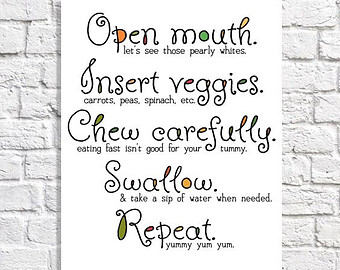 Open mouth.
let's see those pearly whites.
Insert veggies.
carrots, peas, spinach, etc.
Chew carefully.
eating fast isn't good for your tummy.
Swallow.
& take a sip of water when needed.
Repeat.
yummy yum yum.